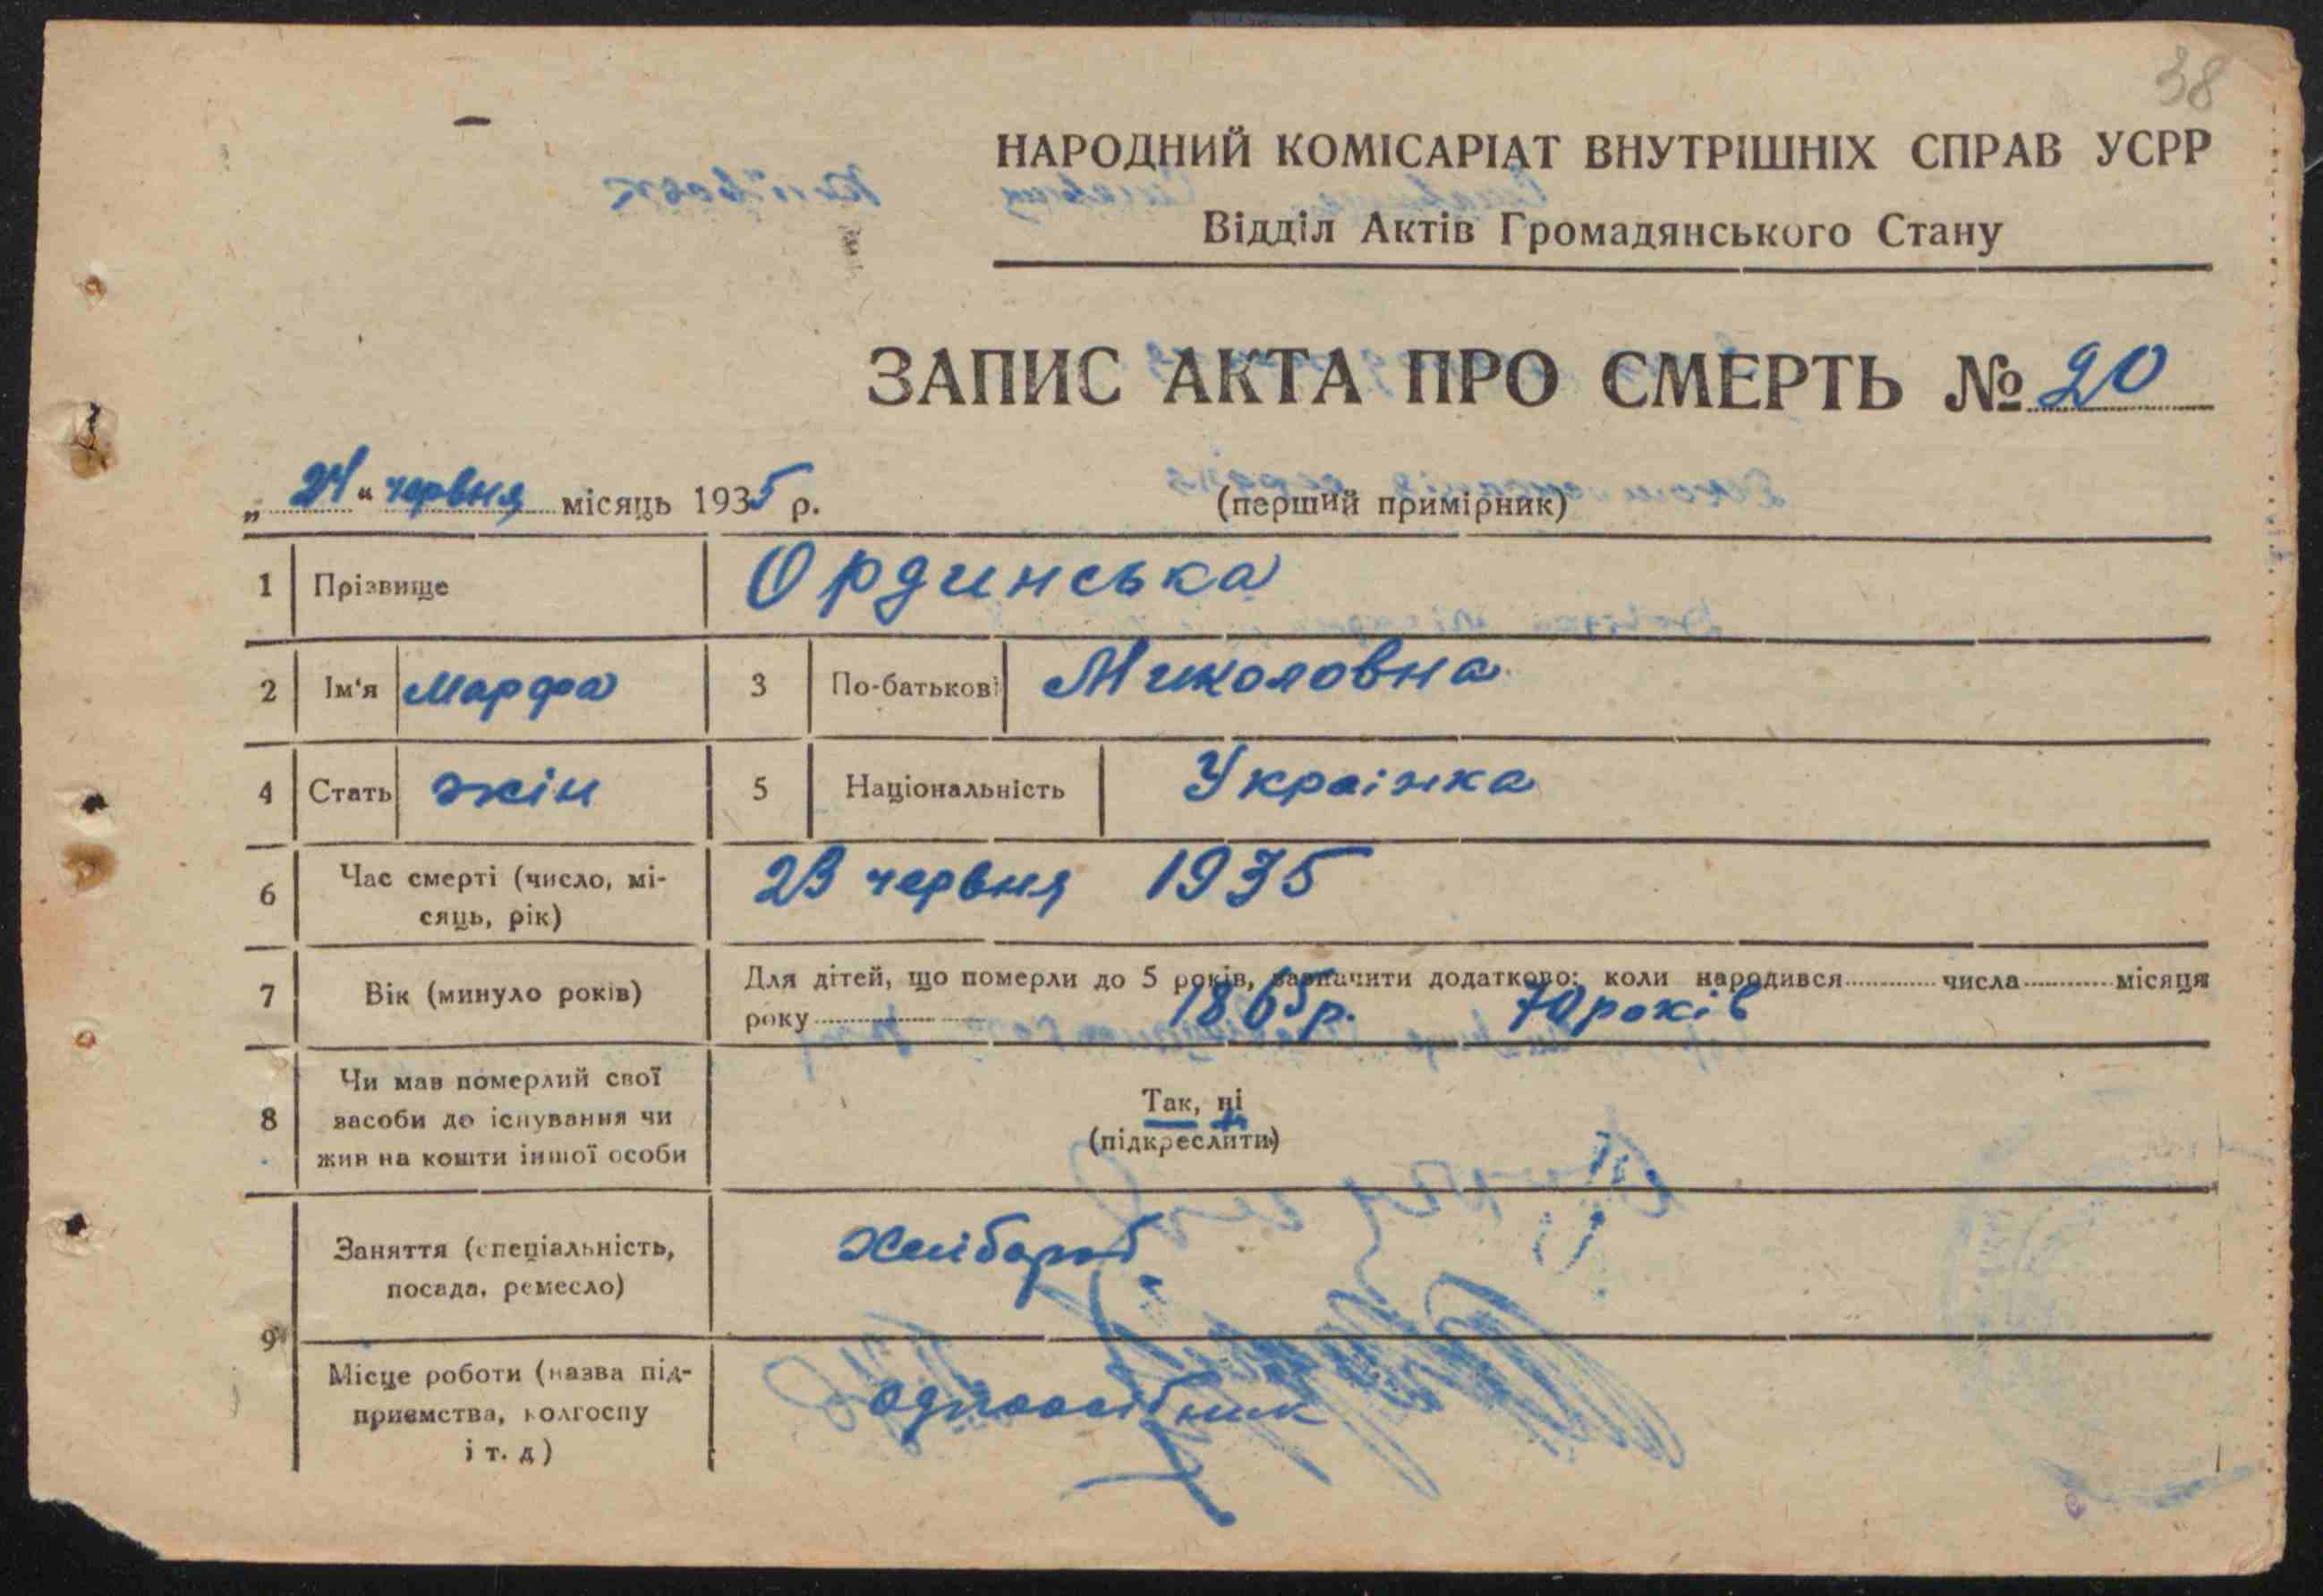 38
НАРОДНИЙ КОМІСАРІАТ ВНУТРІШНІХ СПРАВ УСРР
Відділ Актів Громадянського Стану
ЗАПИС АКТА ПРО СМЕРТЬ № 20
„ 24 “ червня місяць 1935 р. (перший примірник)
1 Прізвище Ординська
2 Ім'я Марфа 3 По-батькові Миколовна
4 Стать жін 5 Національність Українка
6 Час смерті (число, мі-
сяць, рік) 23 червня 1935
7 Вік (минуло років) Для дітей, що померли до 5 років, зазначити додатково: коли народився числа місяця
року 1865р. 70 років
8 Чи мав померлий свої
засоби до існування чи
жив на кошти іншої особи
Так, ні
(підкреслити)
9 Заняття (спеціальність,
посада, ремесло) Хлібороб
Місце роботи (назва під-
приємства, колгоспу
і т. д) одноосібник